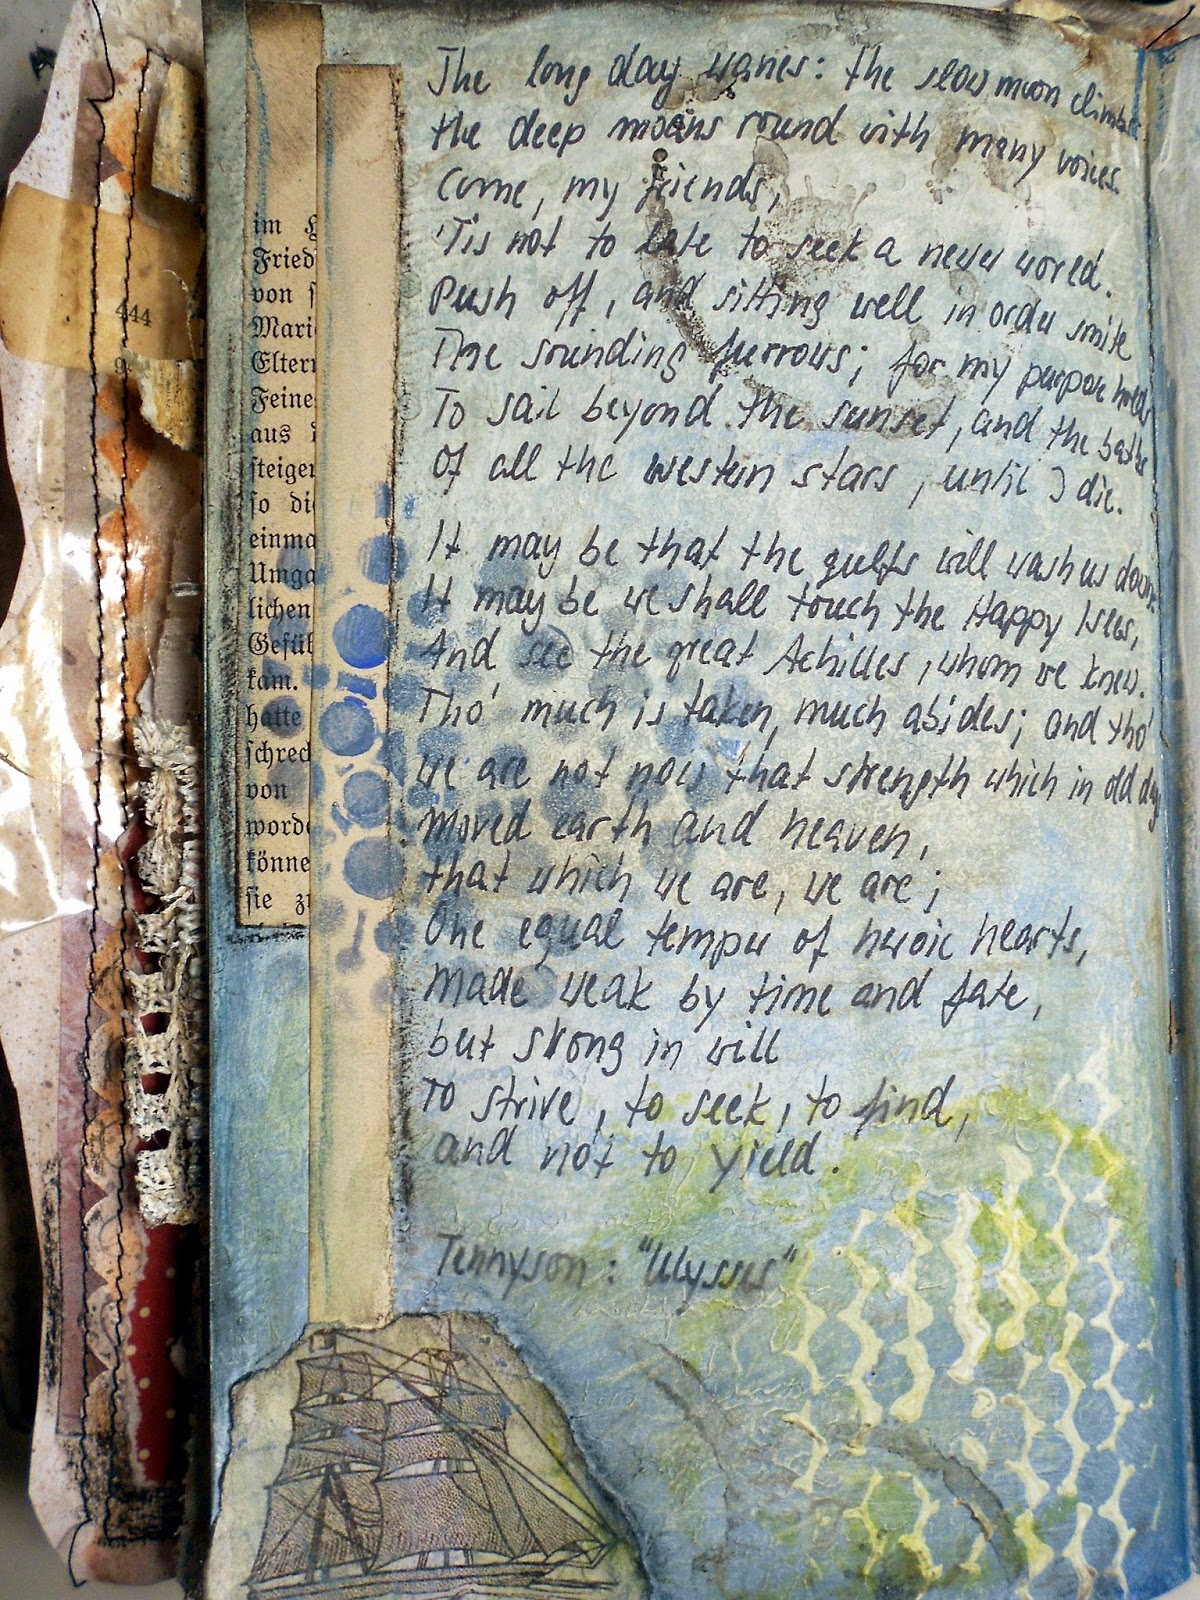 444
im
Fried
von
Mari
Eltern
Feine
aus
steiger
so die
einma
Umga
lichen
Gefüh
kam.
hatte
schreck
von
worde
könne
sie zu
The long day wanes: the slow moon climbs
the deep moans round with many voices.
Come, my friends,
'Tis not to late to seek a newer world.
Push off, and sitting well in order smite
The sounding furrows; for my purpose holds
To sail beyond the sunset, and the baths
Of all the western stars, until I die.
It may be that the gulfs will wash us down:
It may be we shall touch the Happy Isles,
And see the great Achilles, whom we knew.
Tho' much is taken, much abides; and tho'
we are not now that strength which in old days
moved earth and heaven,
that which we are, we are;
One equal temper of heroic hearts,
made weak by time and fate,
but strong in will
To strive, to seek, to find,
and not to yield.
Tennyson: "Ulysses"